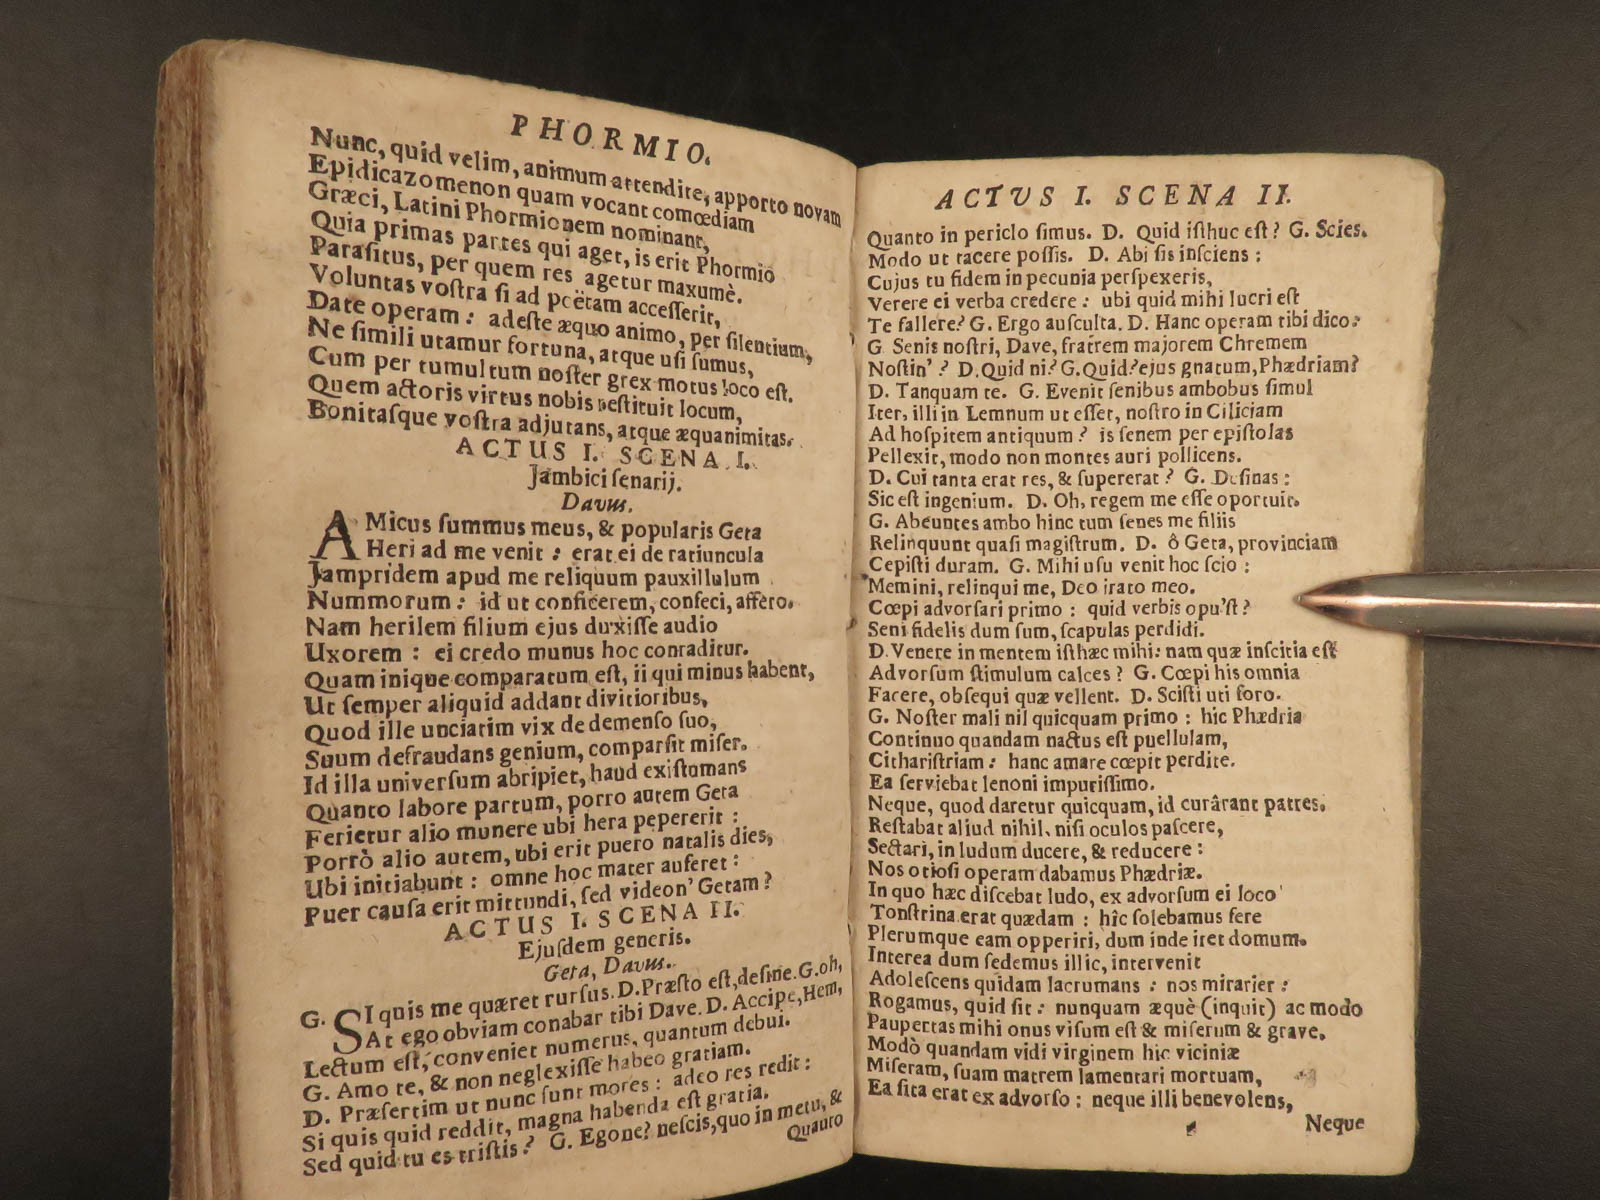 PHORMIO.
Nunc, quid velim, animum attendite, apporto novam
Epidicazomenon quam vocant comœdiam
Græci, Latini Phormionem nominant,
Quia primas partes qui aget, is erit Phormio
Parasitus, per quem res agetur maxumè.
Voluntas vostra si ad poëtam accesserit,
Date operam: adeste æquo animo, per silentium,
Ne simili utamur fortuna, atque usi sumus,
Cum per tumultum noster grex motus loco est.
Quem actoris virtus nobis restituit locum,
Bonitasque vostra adjutans, atque æquanimitas.
ACTUS I. SCENA I.
Jambici senarij.
Davus.
AMicus summus meus, & popularis Geta
Heri ad me venit: erat ei de ratiuncula
Jampridem apud me reliquum pauxillulum
Nummorum: id ut conficerem, confeci, affero.
Nam herilem filium ejus duxisse audio
Uxorem: ei credo munus hoc conraditur.
Quam inique comparatum est, ii qui minus habent,
Ut semper aliquid addant divitioribus,
Quod ille unciatim vix de demenso suo,
Suum defraudans genium, comparsit miser.
Id illa universum abripiet, haud existumans
Quanto labore partum, porro autem Geta
Ferietur alio munere ubi hera pepererit:
Porrò alio autem, ubi erit puero natalis dies,
Ubi initiabunt: omne hoc mater auferet:
Puer causa erit mittundi, sed videon' Getam?
ACTUS I. SCENA II.
Ejusdem generis.
Geta, Davus.
G. SI quis me quæret rursus. D. Præsto est, desine. G. oh,
At ego obviam conabar tibi Dave. D. Accipe, Hem,
Lectum est, conveniet numerus, quantum debui.
G. Amo te, & non neglexisse habeo gratiam.
D. Præsertim ut nunc sunt mores: adeo res redit:
Si quis quid reddit, magna habenda est gratia.
Sed quid tu es tristis? G. Egone? nescis, quo in metu, &
Quanto
ACTVS I. SCENA II.
Quanto in periclo simus. D. Quid isthuc est? G. Scies.
Modo ut tacere possis. D. Abi sis insciens:
Cujus tu fidem in pecunia perspexeris,
Verere ei verba credere: ubi quid mihi lucri est
Te fallere? G. Ergo ausculta. D. Hanc operam tibi dico.
G. Senis nostri, Dave, fratrem majorem Chremem
Nostin'? D. Quid ni? G. Quid? ejus gnatum, Phædriam?
D. Tanquam te. G. Evenit senibus ambobus simul
Iter, illi in Lemnum ut esset, nostro in Ciliciam
Ad hospitem antiquum? is senem per epistolas
Pellexit, modo non montes auri pollicens.
D. Cui tanta erat res, & supererat? G. Desinas:
Sic est ingenium. D. Oh, regem me esse oportuit.
G. Abeuntes ambo hinc tum senes me filiis
Relinquunt quasi magistrum. D. ô Geta, provinciam
Cepisti duram. G. Mihi usu venit hoc scio:
Memini, relinqui me, Deo irato meo.
Cœpi advorsari primo: quid verbis opu'st?
Seni fidelis dum sum, scapulas perdidi.
D. Venere in mentem isthæc mihi: nam quæ inscitia est
Advorsum stimulum calces? G. Cœpi his omnia
Facere, obsequi quæ vellent. D. Scisti uti foro.
G. Noster mali nil quicquam primo: hic Phædria
Continuo quandam nactus est puellulam,
Citharistriam: hanc amare cœpit perdite.
Ea serviebat lenoni impurissimo.
Neque, quod daretur quicquam, id curârant patres.
Restabat aliud nihil, nisi oculos pascere,
Sectari, in ludum ducere, & reducere:
Nos otiosi operam dabamus Phædriæ.
In quo hæc discebat ludo, ex advorsum ei loco
Tonstrina erat quædam: hîc solebamus fere
Plerumque eam opperiri, dum inde iret domum.
Interea dum sedemus illic, intervenit
Adolescens quidam lacrumans: nos mirarier:
Rogamus, quid sit: nunquam æquè (inquit) ac modo
Paupertas mihi onus visum est & miserum & grave.
Modò quandam vidi virginem hic viciniæ
Miseram, suam matrem lamentari mortuam,
Ea sita erat ex advorso: neque illi benevolens,
Neque